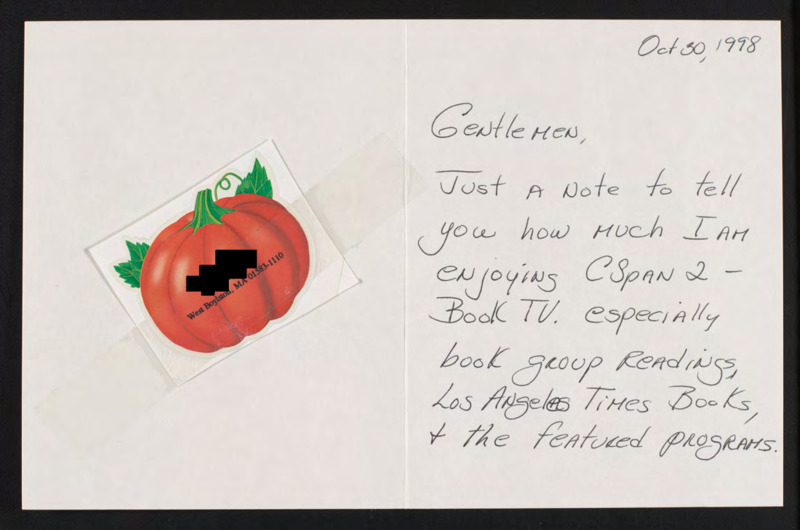 West Boylston, MA 01583-1110
Oct 30, 1998
Gentlemen,
Just a note to tell
you how much I am
enjoying CSpan 2 -
Book TV. especially
book group readings,
Los Angeles Times Books,
+ the featured programs.